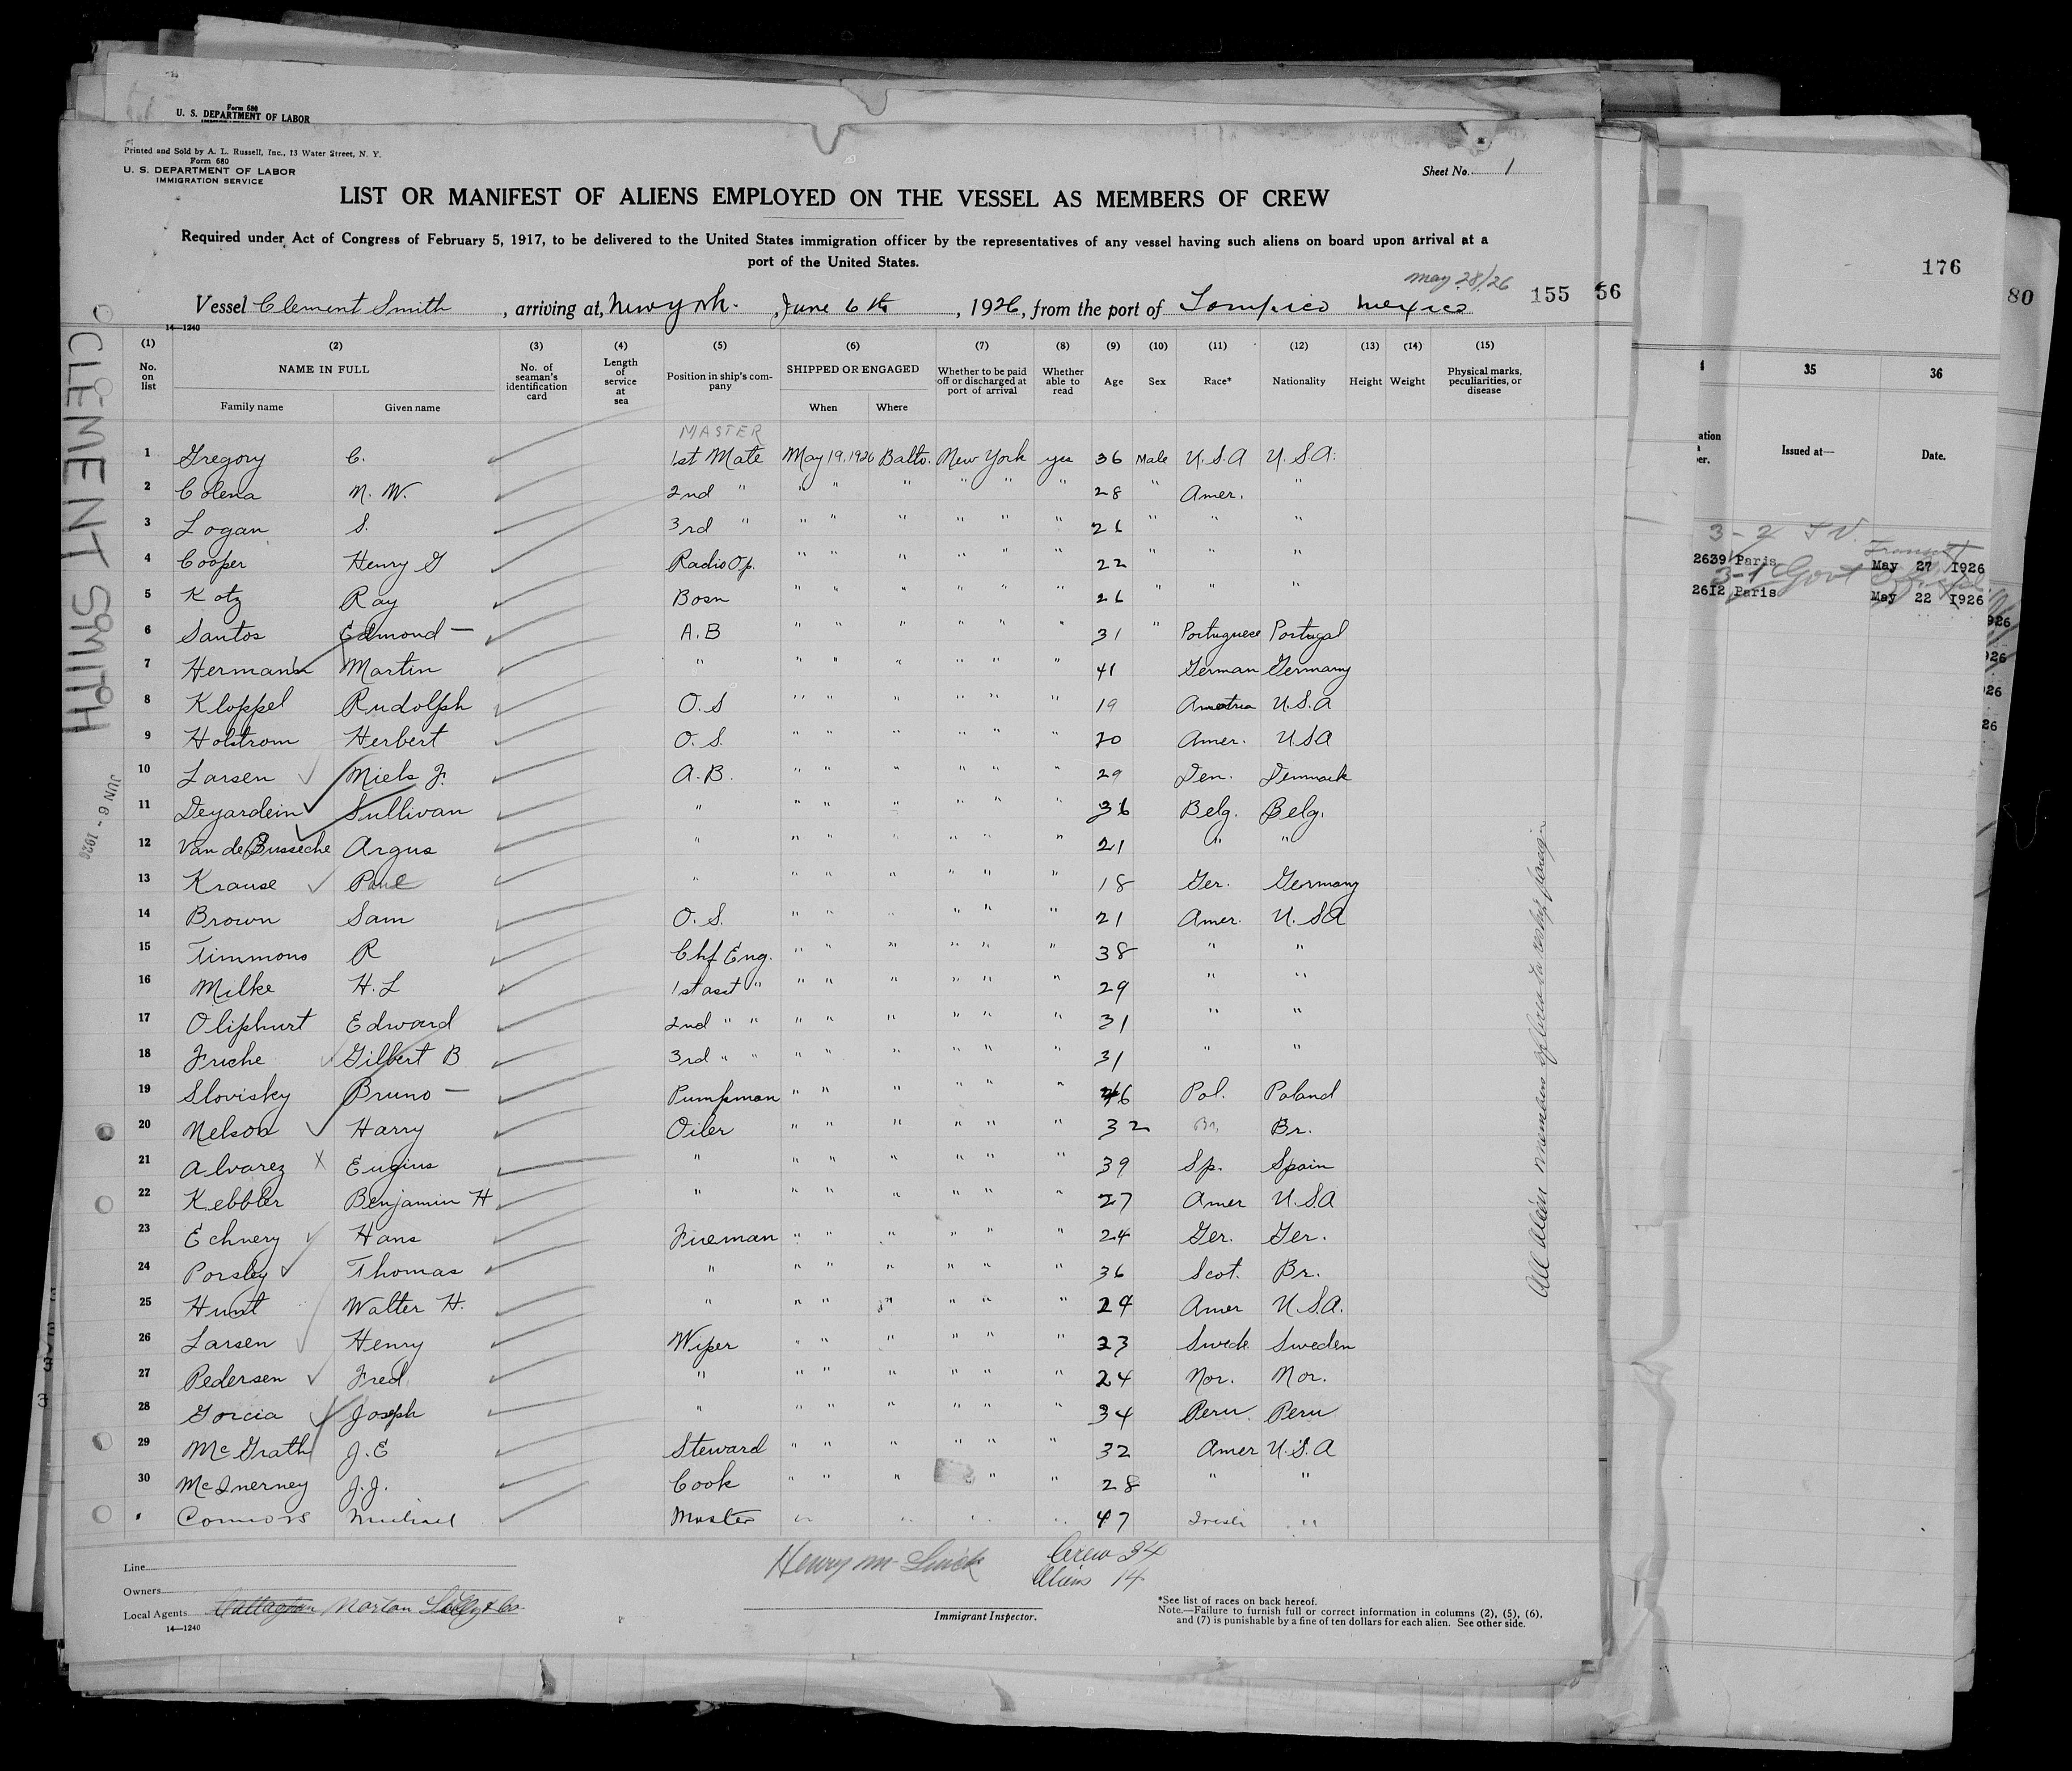 Form 680
U. S. DEPARTMENT OF LABOR
Printed and Sold by A. L. Russell, Inc., 13 Water Street, N. Y.
Form 680
U. S. DEPARTMENT OF LABOR
IMMIGRATION SERVICE
Sheet No. 1
LIST OR MANIFEST OF ALIENS EMPLOYED ON THE VESSEL AS MEMBERS OF CREW
Required under Act of Congress of February 5, 1917, to be delivered to the United States immigration officer by the representatives of any vessel having such aliens on board upon arrival at a
port of the United States.
May 28/26
Vessel Clement Smith, arriving at, New York. June 6th, 1926, from the port of Tampico Mexico
155 56
14—1240
(1) (2) (3) (4) (5) (6) (7) (8) (9) (10) (11) (12) (13) (14) (15)
No. on list NAME IN FULL Family name Given name No. of seaman's identification card Length of service at sea Position in ship's company SHIPPED OR ENGAGED When Where Whether to be paid off or discharged at port of arrival Whether able to read Age Sex Race* Nationality Height Weight Physical marks, peculiarities, or disease
MASTER
1 Gregory C. 1st Mate May 19, 1926 Balto. New York yes 36 Male U.S.A U.S.A.
2 Colena M. W. 2nd " " " " " " " 28 " Amer. "
3 Logan S. 3rd " " " " " " " 26 " " "
4 Cooper Henry G Radio Op. " " " " " " 22 " " "
5 Kotz Ray Bosn " " " " " " 26 " " "
6 Santos Edmond — A.B " " " " " " 31 " Portuguese Portugal
7 Hermann Martin " " " " " " " 41 German Germany
8 Kloppel Rudolph O.S " " " " " " 19 U.S.A
9 Holstrom Herbert O.S. " " " " " " 20 Amer. USA
10 Larsen Niels J. A.B. " " " " " " 29 Den. Denmark
11 Deyardein Sullivan " " " " " " " 36 Belg. Belg.
12 Van de Bussche Argus " " " " " " " 21 " "
13 Krause Paul " " " " " " " 18 Ger. Germany
14 Brown Sam O.S. " " " " " " 21 Amer. U.SA
15 Timmons R Chf Eng. " " " " " " 38 " "
16 Milke H.L 1st asst " " " " " " " 29 " "
17 Oliphurt Edward 2nd " " " " " " " " 31 " "
18 Friche Gilbert B 3rd " " " " " " " " 31 " "
19 Slovisky Bruno — Pumpman " " " " " " 46 Pol. Poland
20 Nelson Harry Oiler " " " " " " 32 Br. Br.
21 Alvarez X Eugius " " " " " " " 39 Sp. Spain
22 Kebbler Benjamin H " " " " " " " 27 Amer U.S.A
23 Echnery Hans Fireman " " " " " " 24 Ger. Ger.
24 Porsley Thomas " " " " " " " 36 Scot. Br.
25 Hunt Walter H. " " " " " " " 29 Amer U.S.A.
26 Larsen Henry Wiper " " " " " " 23 Swede Sweden
27 Pedersen Fred " " " " " " " 24 Nor. Nor.
28 Gorcia Joseph " " " " " " " 34 Peru Peru
29 McGrath J.E Steward " " " " " " 32 Amer U.S.A
30 McInerney J.J. Cook " " " " " 28 " "
Connors Michael Master " " " " 47 Irish "
Line
Owners
Local Agents Norton Lilly & Co
14—1240
Immigrant Inspector.
Crew 34
Aliens 14
*See list of races on back hereof.
Note.—Failure to furnish full or correct information in columns (2), (5), (6),
and (7) is punishable by a fine of ten dollars for each alien. See other side.
CLEMENT SMITH
JUN 6 - 1926
176
80
35 36
Issued at— Date.
3-2
2639 Paris May 27 1926
3-1 Govt Official
2612 Paris May 22 1926